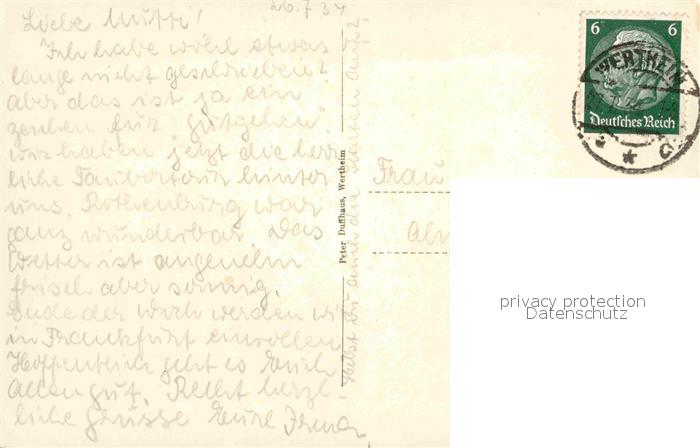 26.7.34
Liebe Mutti!
Ich habe wohl etwas
lange nicht geschrieben?
aber das ist ja ein
zeichen für "gutgehen"
wir haben jetzt die herr
liche Taubertour hinter
uns. Rothenburg war
ganz wunderbar. Das
Wetter ist angenehm
frisch aber sonnig.
Ende der Woche werden wir
in Frankfurt einrollen
Hoffentlich geht es Euch
allen gut. Recht herz-
liche Grüsse Eure Irma
Hebst Du auch die Karten auf?
Peter Duffhaus, Wertheim
6 6
Deutsches Reich
WERTHEIM
Frau
privacy protection
Datenschutz